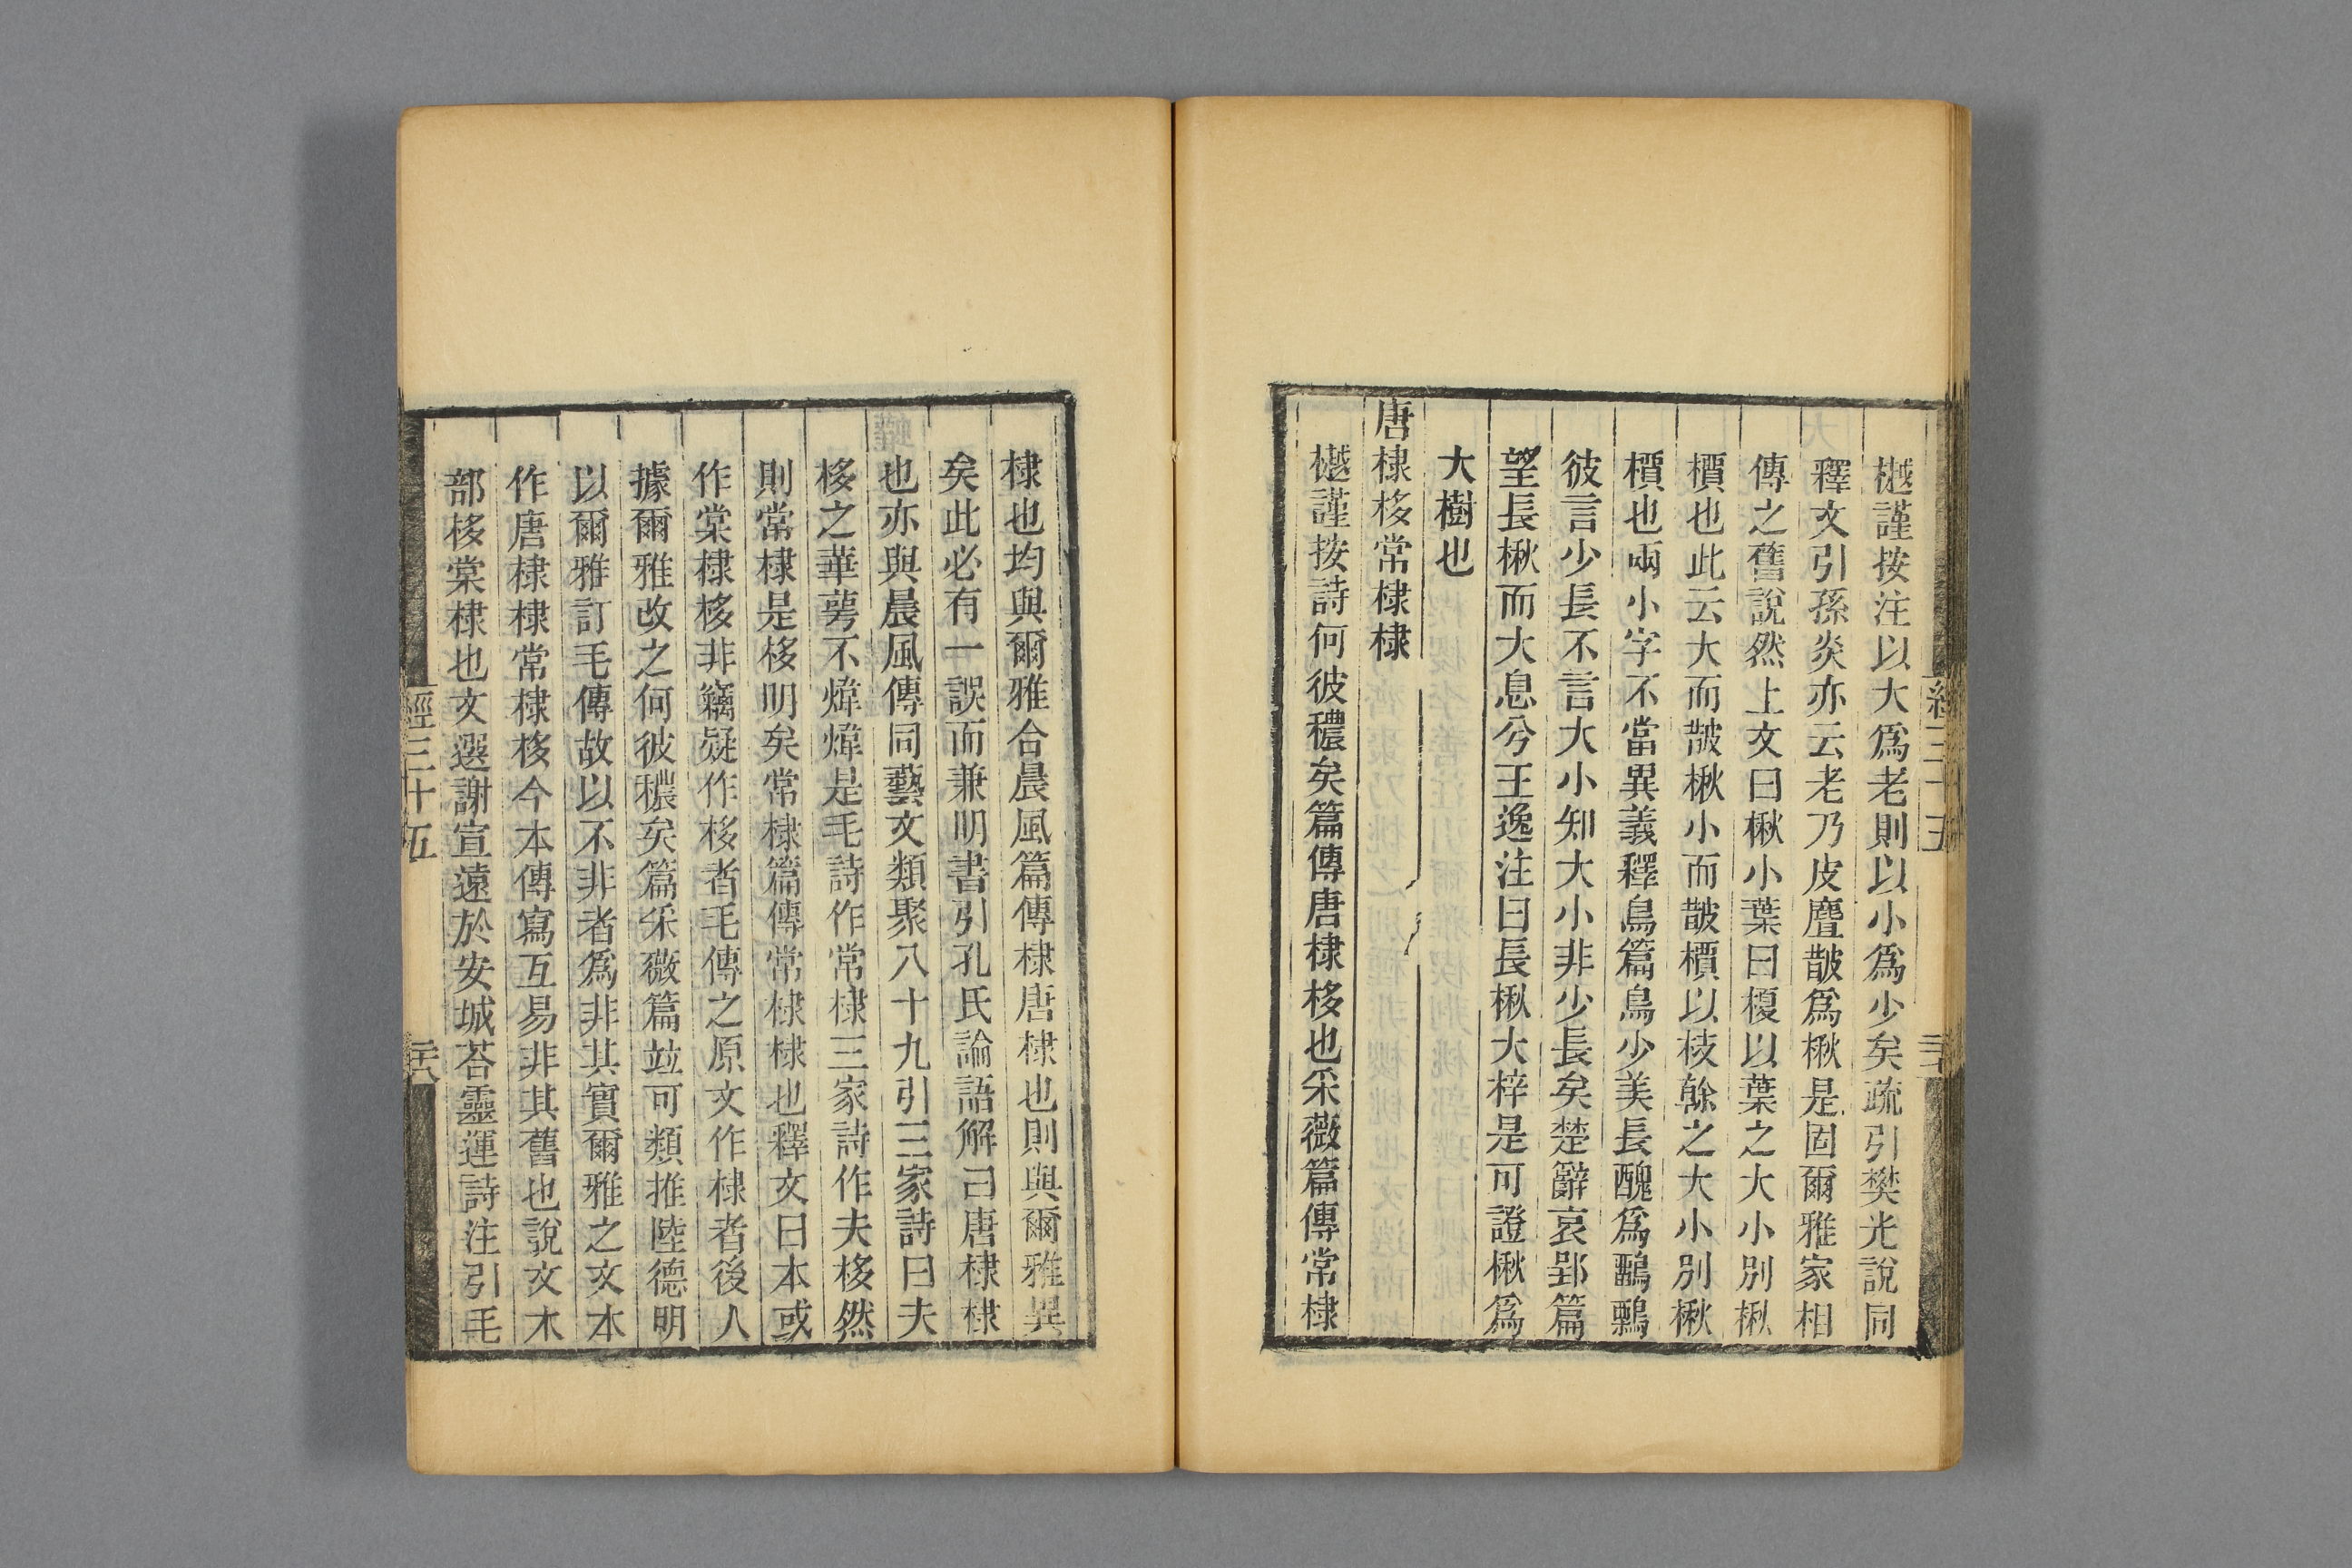 樾謹按注以大爲老則以小爲少矣疏引樊光說同
釋文引孫炎亦云老乃皮麆皵爲楸是固爾雅家相
傳之舊說然上文曰楸小葉曰榎以葉之大小別楸
檟也此云大而皵楸小而皵檟以枝榦之大小別楸
檟也兩小字不當異義釋鳥篇鳥少美長醜爲鶹鷅
彼言少長不言大小知大小非少長矣楚辭哀郢篇
望長楸而大息兮王逸注曰長楸大梓是可證楸爲
大樹也
唐棣栘常棣棣
樾謹按詩何彼穠矣篇傳唐棣栘也采薇篇傳常棣
棣也均與爾雅合晨風篇傳棣唐棣也則與爾雅異
矣此必有一誤而兼明書引孔氏論語解曰唐棣棣
也亦與晨風傳同藝文類聚八十九引三家詩曰夫
栘之華萼不煒煒是毛詩作常棣三家詩作夫栘然
則常棣是栘明矣常棣篇傳常棣棣也釋文曰本或
作棠棣栘非竊疑作栘者毛傳之原文作棣者後人
據爾雅改之何彼穠矣篇采薇篇竝可類推陸德明
以爾雅訂毛傳故以不非者爲非其實爾雅之文本
作唐棣棣常棣栘今本傳寫互易非其舊也說文木
部栘棠棣也文選謝宣遠於安城荅靈運詩注引毛
經三十五